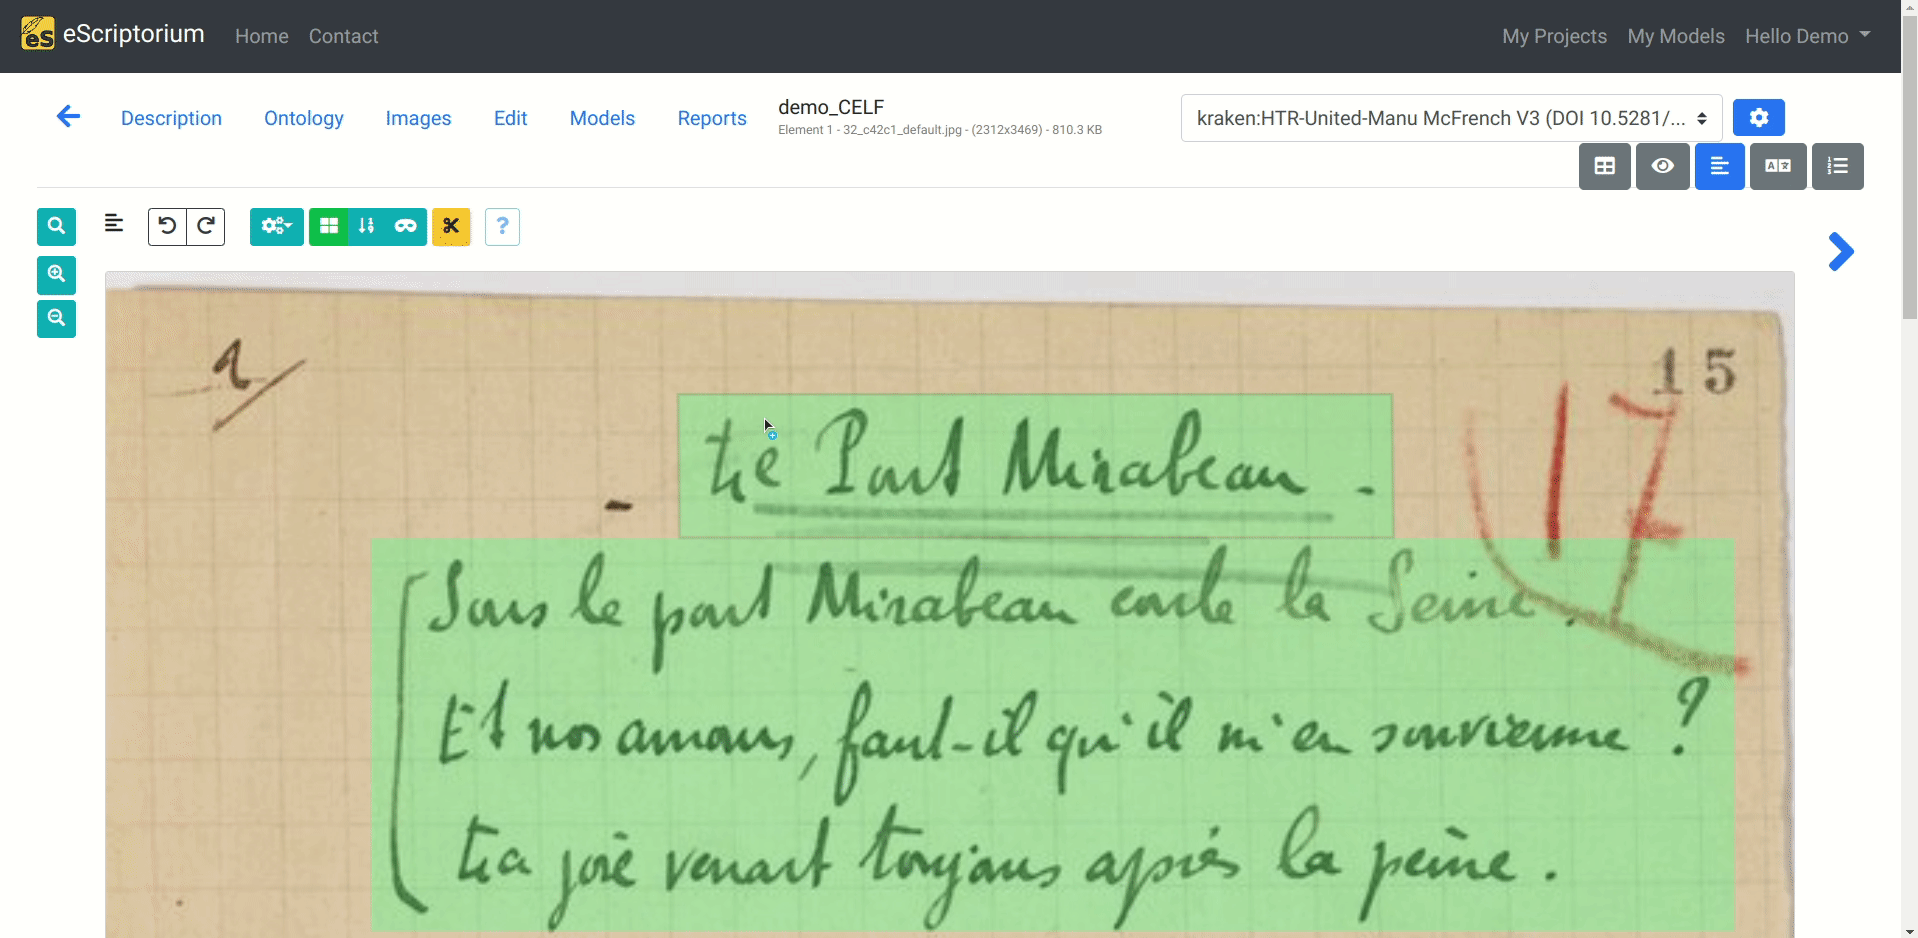 eScriptorium Home Contact My Projects My Models Hello Demo
Description Ontology Images Edit Models Reports
demo_CELF
Element 1 - 32_c42c1_default.jpg - (2312x3469) - 810.3 KB
kraken:HTR-United-Manu McFrench V3 (DOI 10.5281/...
?
1/
15
17
- Le Pont Mirabeau -
Sous le pont Mirabeau coule la Seine.
Et nos amours, faut-il qu'il m'en souvienne ?
La joie venait toujours après la peine.